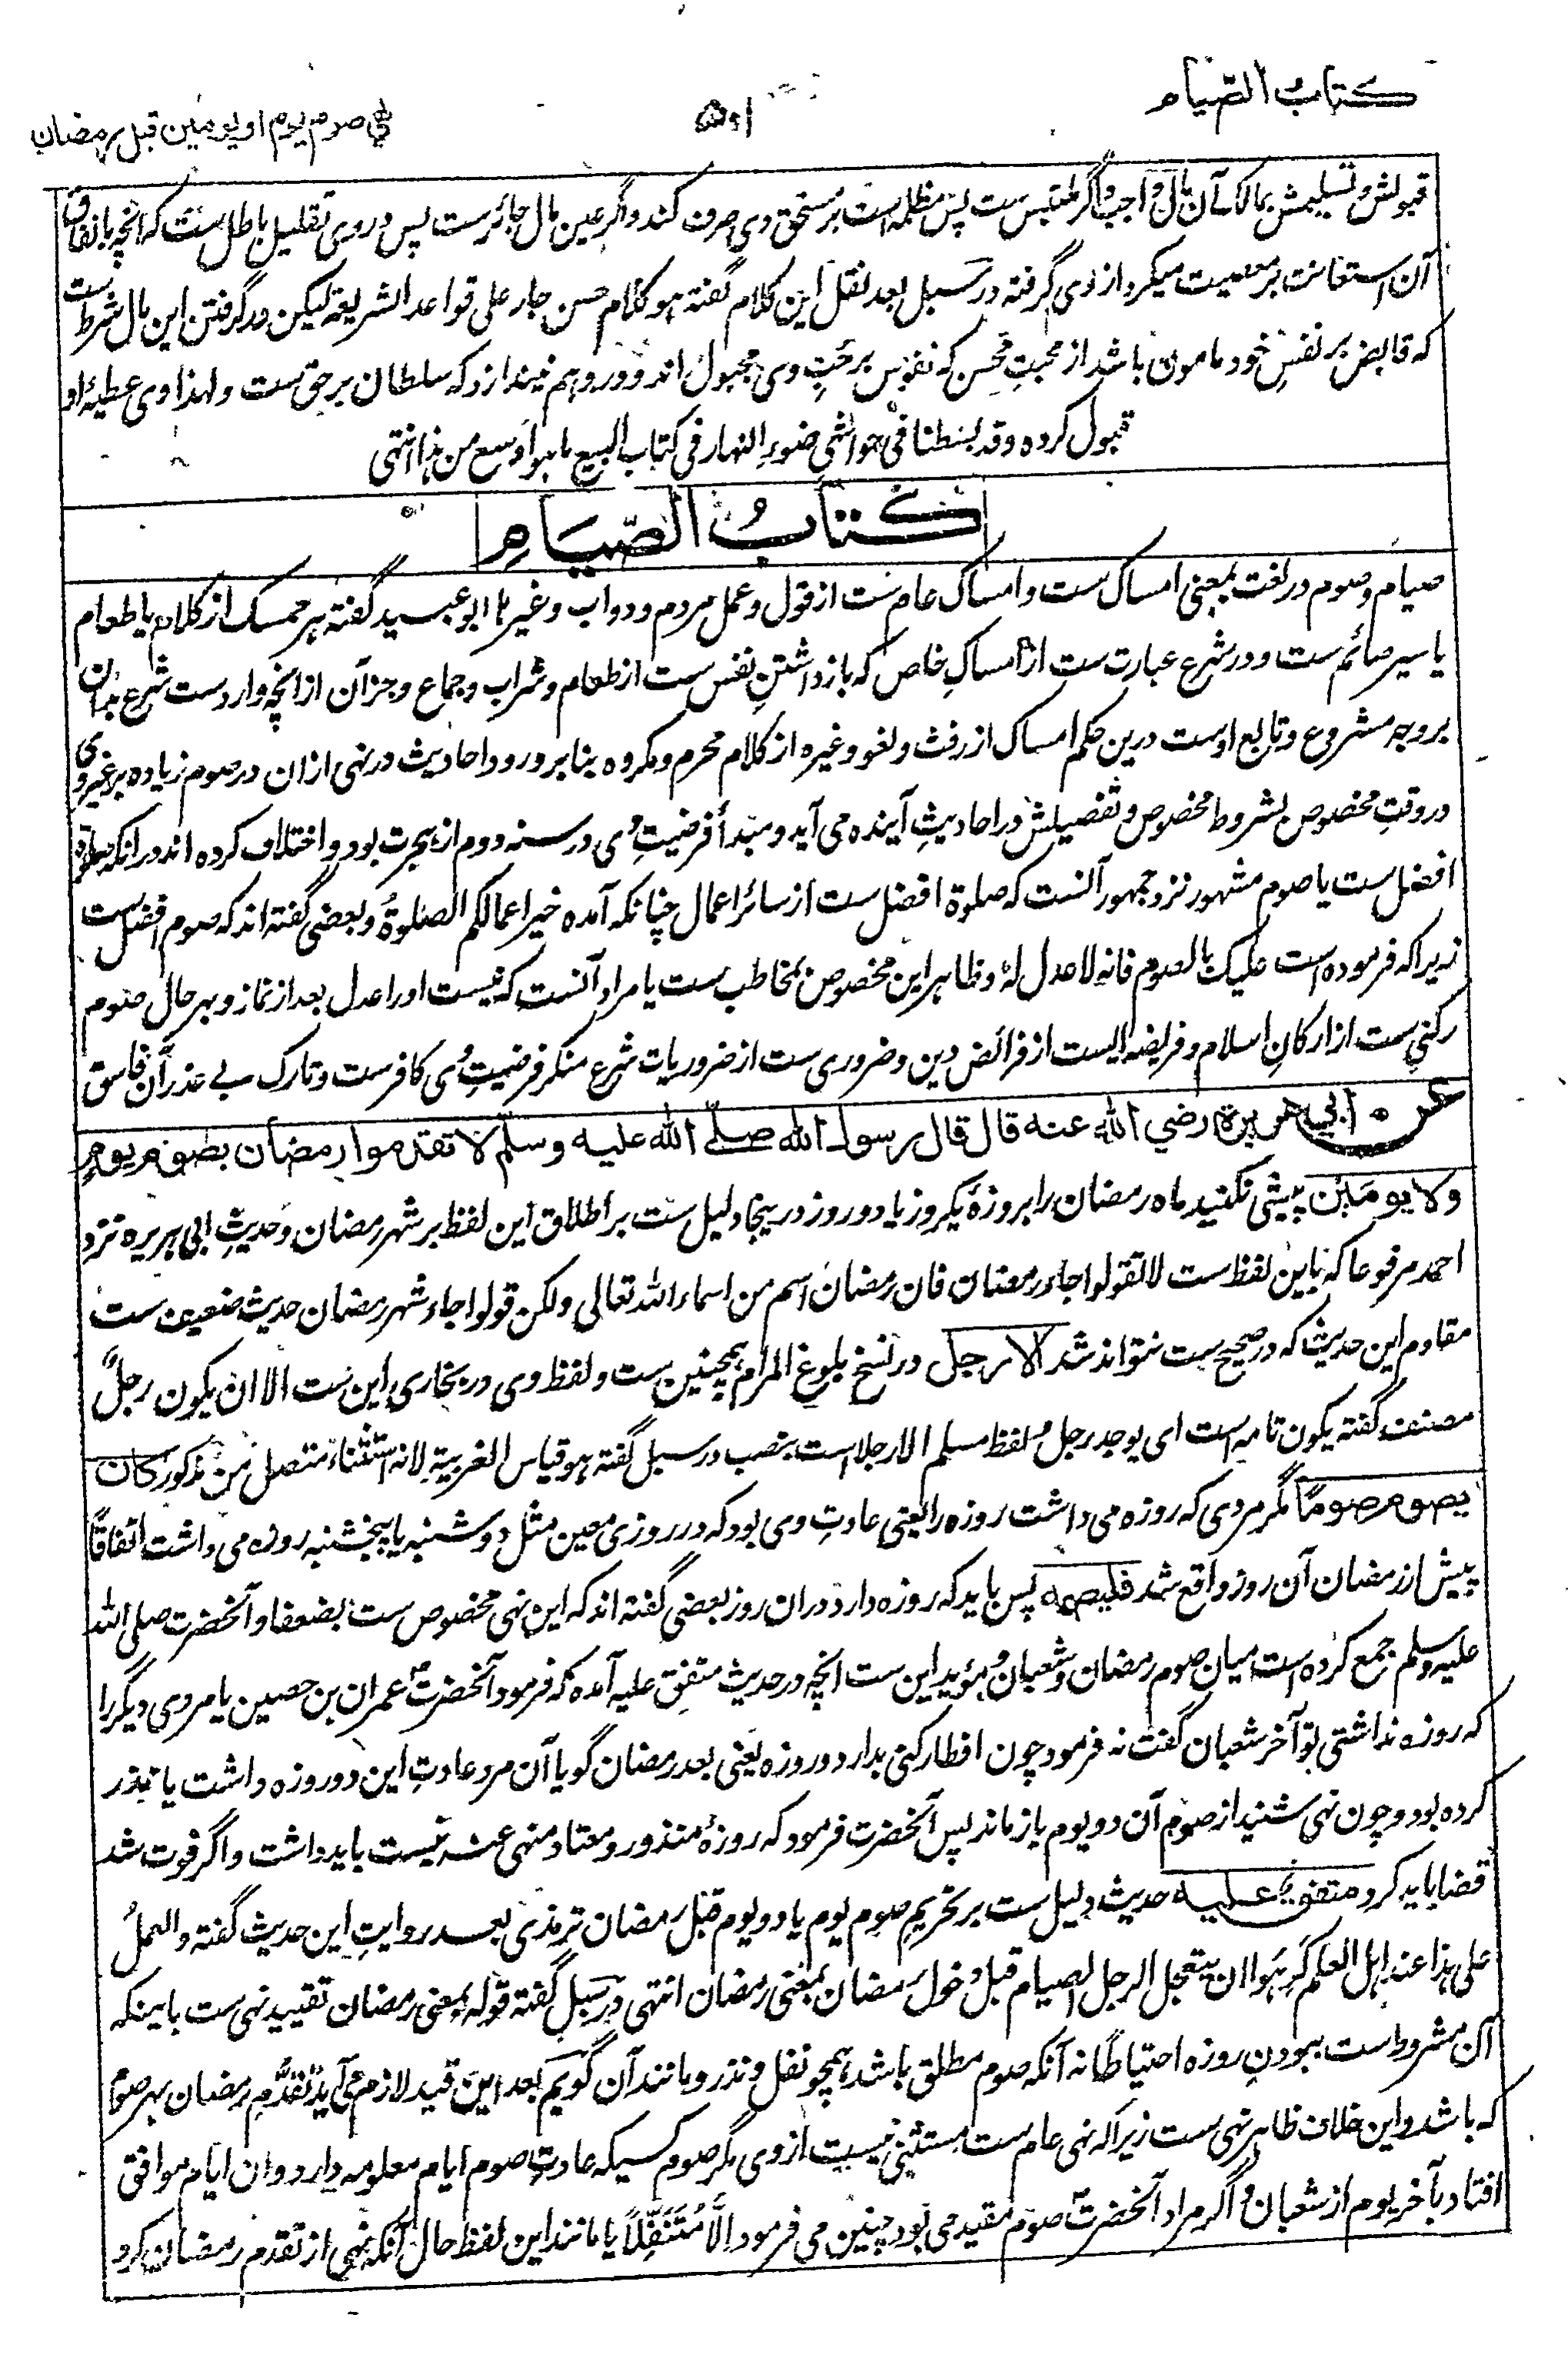 كتاب الصّيام
٥٠١
في صوم يوم او يومين قبل رمضان
قبولش و تسلیمش بمالک آن مال واجب و اگر ملتبس ست پس مظلمه است بر مستحق وی صرف کند و اگر عین مال جائرست پس در وی تقلیل باطل ست که انچه بانفاق
آن استعانت بر معصیت میکرد از وی گرفته در سبل بعد نقل این کلام گفته هو کلام حسن جار علی قواعد الشریعة لیکن در گرفتن این مال شرط ست
که قابض بر نفس خود مامون باشد از محبتِ محسن که نفوس بر حُبِّ وی مجبول اند و در وهم نیندازد که سلطان بر حق ست و لهذا وی عطیهٔ او
قبول کرده وقد بسطنا فی حواشی ضوء النهار فی کتاب البیع ما هو اوسع من هذا انتهی
كتابُ الصّيامِ
صیام و صوم در لغت بمعنی امساک ست و امساک عام ست از قول و عمل مردم و دواب و غیرها ابو عبید گفته هر ممسک از کلام یا طعام
یا سیر صائم ست و در شرع عبارت ست از امساکِ خاص که بازداشتنِ نفس ست از طعام و شراب و جماع و جز آن از انچه وارد ست شرع بدان
بر وجه مشروع و تابع اوست درین حکم امساک از رفث و لغو و غیره از کلام محرم و مکروه بنا بر ورود احادیث در نهی ازان در صوم زیاده بر غیر وی
در وقتِ مخصوص بشروط مخصوص و تفصیلش در احادیثِ آینده می آید و مبدأ فرضیتِ وی در سنه دوم از هجرت بود و اختلاف کرده اند در انکه صلوة
افضل ست یا صوم مشهور نزد جمهور آنست که صلوة افضل ست از سائر اعمال چنانکه آمده خیر اعمالکم الصلوةُ و بعضی گفته اند که صوم افضل ست
زیراکه فرموده است علیک بالصوم فانه لا عدل لهٗ و ظاهر این مخصوص بمخاطب ست یا مراد آنست که نیست او را عدل بعد از نماز و بهر حال صوم
رکنی ست از ارکانِ اسلام و فریضه ایست از فرائض دین و ضروری ست از ضروریات شرع منکر فرضیتِ وی کافرست و تارک بے عذر آن فاسق
عن ابي هريرة رضي الله عنه قال قال رسول الله صلّى الله عليه وسلّم لا تقدموا رمضان بصوم يومٍ
ولا يومَيْن پیشی نکنید ماه رمضان را بروزهٔ یکروز یا دو روز در ینجا دلیل ست بر اطلاق این لفظ بر شهر رمضان و حدیثِ ابی هریره نزد
احمد مرفوعا که باین لفظ ست لا تقولوا جاء رمضان فان رمضان اسم من اسماء الله تعالی ولکن قولوا جاء شهر رمضان حدیث ضعیف ست
مقاوم این حدیث که در صحیح ست نتواند شد الا رجل در نسخ بلوغ المرام همچنین ست و لفظ وی در بخاری این ست الا ان یکون رجلٌ
مصنف گفته یکون تامه است ای یوجد رجل و لفظ مسلم الا رجلا است بنصب در سبل گفته هو قیاس العربیة لانه استثناء متصل من مذکور كان
يصوم صومًا مگر مردی که روزه می داشت روزه را یعنی عادتِ وی بود که در روزی معین مثل دو شنبه یا پنجشنبه روزه می داشت اتفاقًا
پیش از رمضان آن روز واقع شد فليصمه پس باید که روزه دارد دران روز بعضی گفته اند که این نهی مخصوص ست بضعفا و آنحضرت صلی الله
علیه وسلم جمع کرده است میان صوم رمضان و شعبان و مؤید این ست انچه در حدیث متفق علیه آمده که فرمود آنحضرت عمران بن حصین یا مردی دیگر را
که روزه نداشتی تو آخر شعبان گفت نه فرمود چون افطار کنی بدار دو روزه یعنی بعد رمضان گویا آن مرد عادتِ این دو روزه داشت یا نذر
کرده بود و چون نهی شنید از صوم آن دو یوم باز ماند پس آنحضرت فرمود که روزهٔ منذور و معتاد منهی عنه نیست باید داشت و اگر فوت شد
قضا باید کرد متفق عليه حدیث دلیل ست بر تحریم صوم یوم یا دو یوم قبل رمضان ترمذی بعد روایتِ این حدیث گفته والعملُ
علی هذا عند اهل العلم کرهوا ان یتعجل الرجل الصیام قبل دخول رمضان بمعنی رمضان انتهی در سبل گفته قوله بمعنی رمضان تقیید نهی ست باینکه
آن مشروط ست ببودنِ روزه احتیاطًا نه آنکه صوم مطلق باشد همچو نفل و نذر و مانند آن گویم بعد این قید لازم می آید تقدُّمِ رمضان بهر صوم
که باشد و این خلاف ظاهر نهی ست زیراکه نهی عام ست مستثنی نیست از وی مگر صوم کسیکه عادتِ صوم ایام معلومه دارد و ان ایام موافق
افتاد بآخر یوم از شعبان و اگر مراد آنحضرت صوم مقید می بود چنین می فرمود اِلَّا مُتَنَفِّلاً یا مانند این لفظ حال آنکه نهی از تقدم رمضان کرد